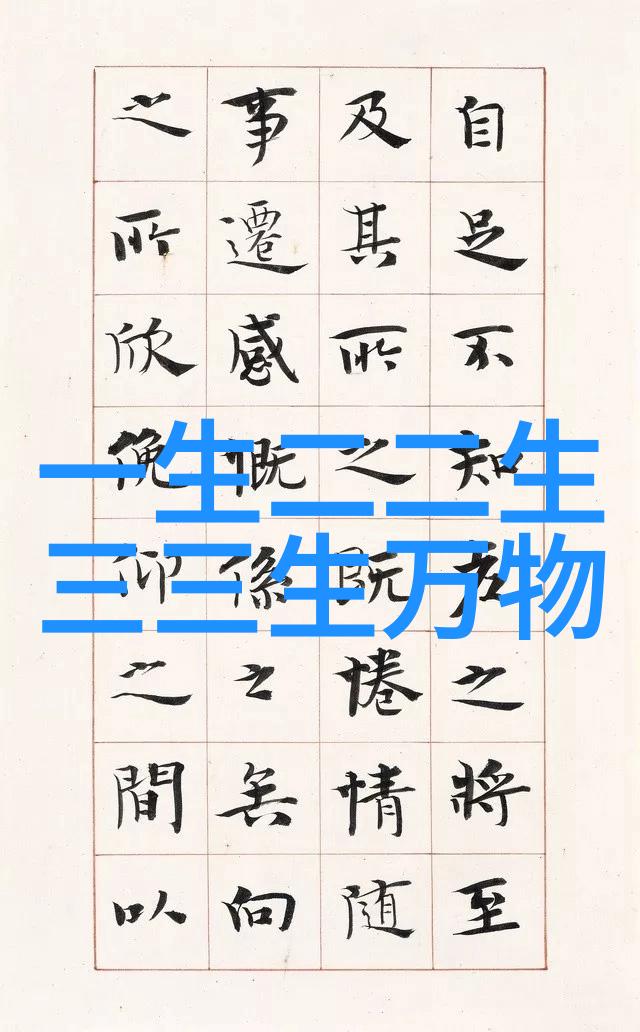 自足不知老之將至
及其所之既惓情隨
事遷感慨係之矣向
之所欣俛仰之間以
一生二二生
三三生万物